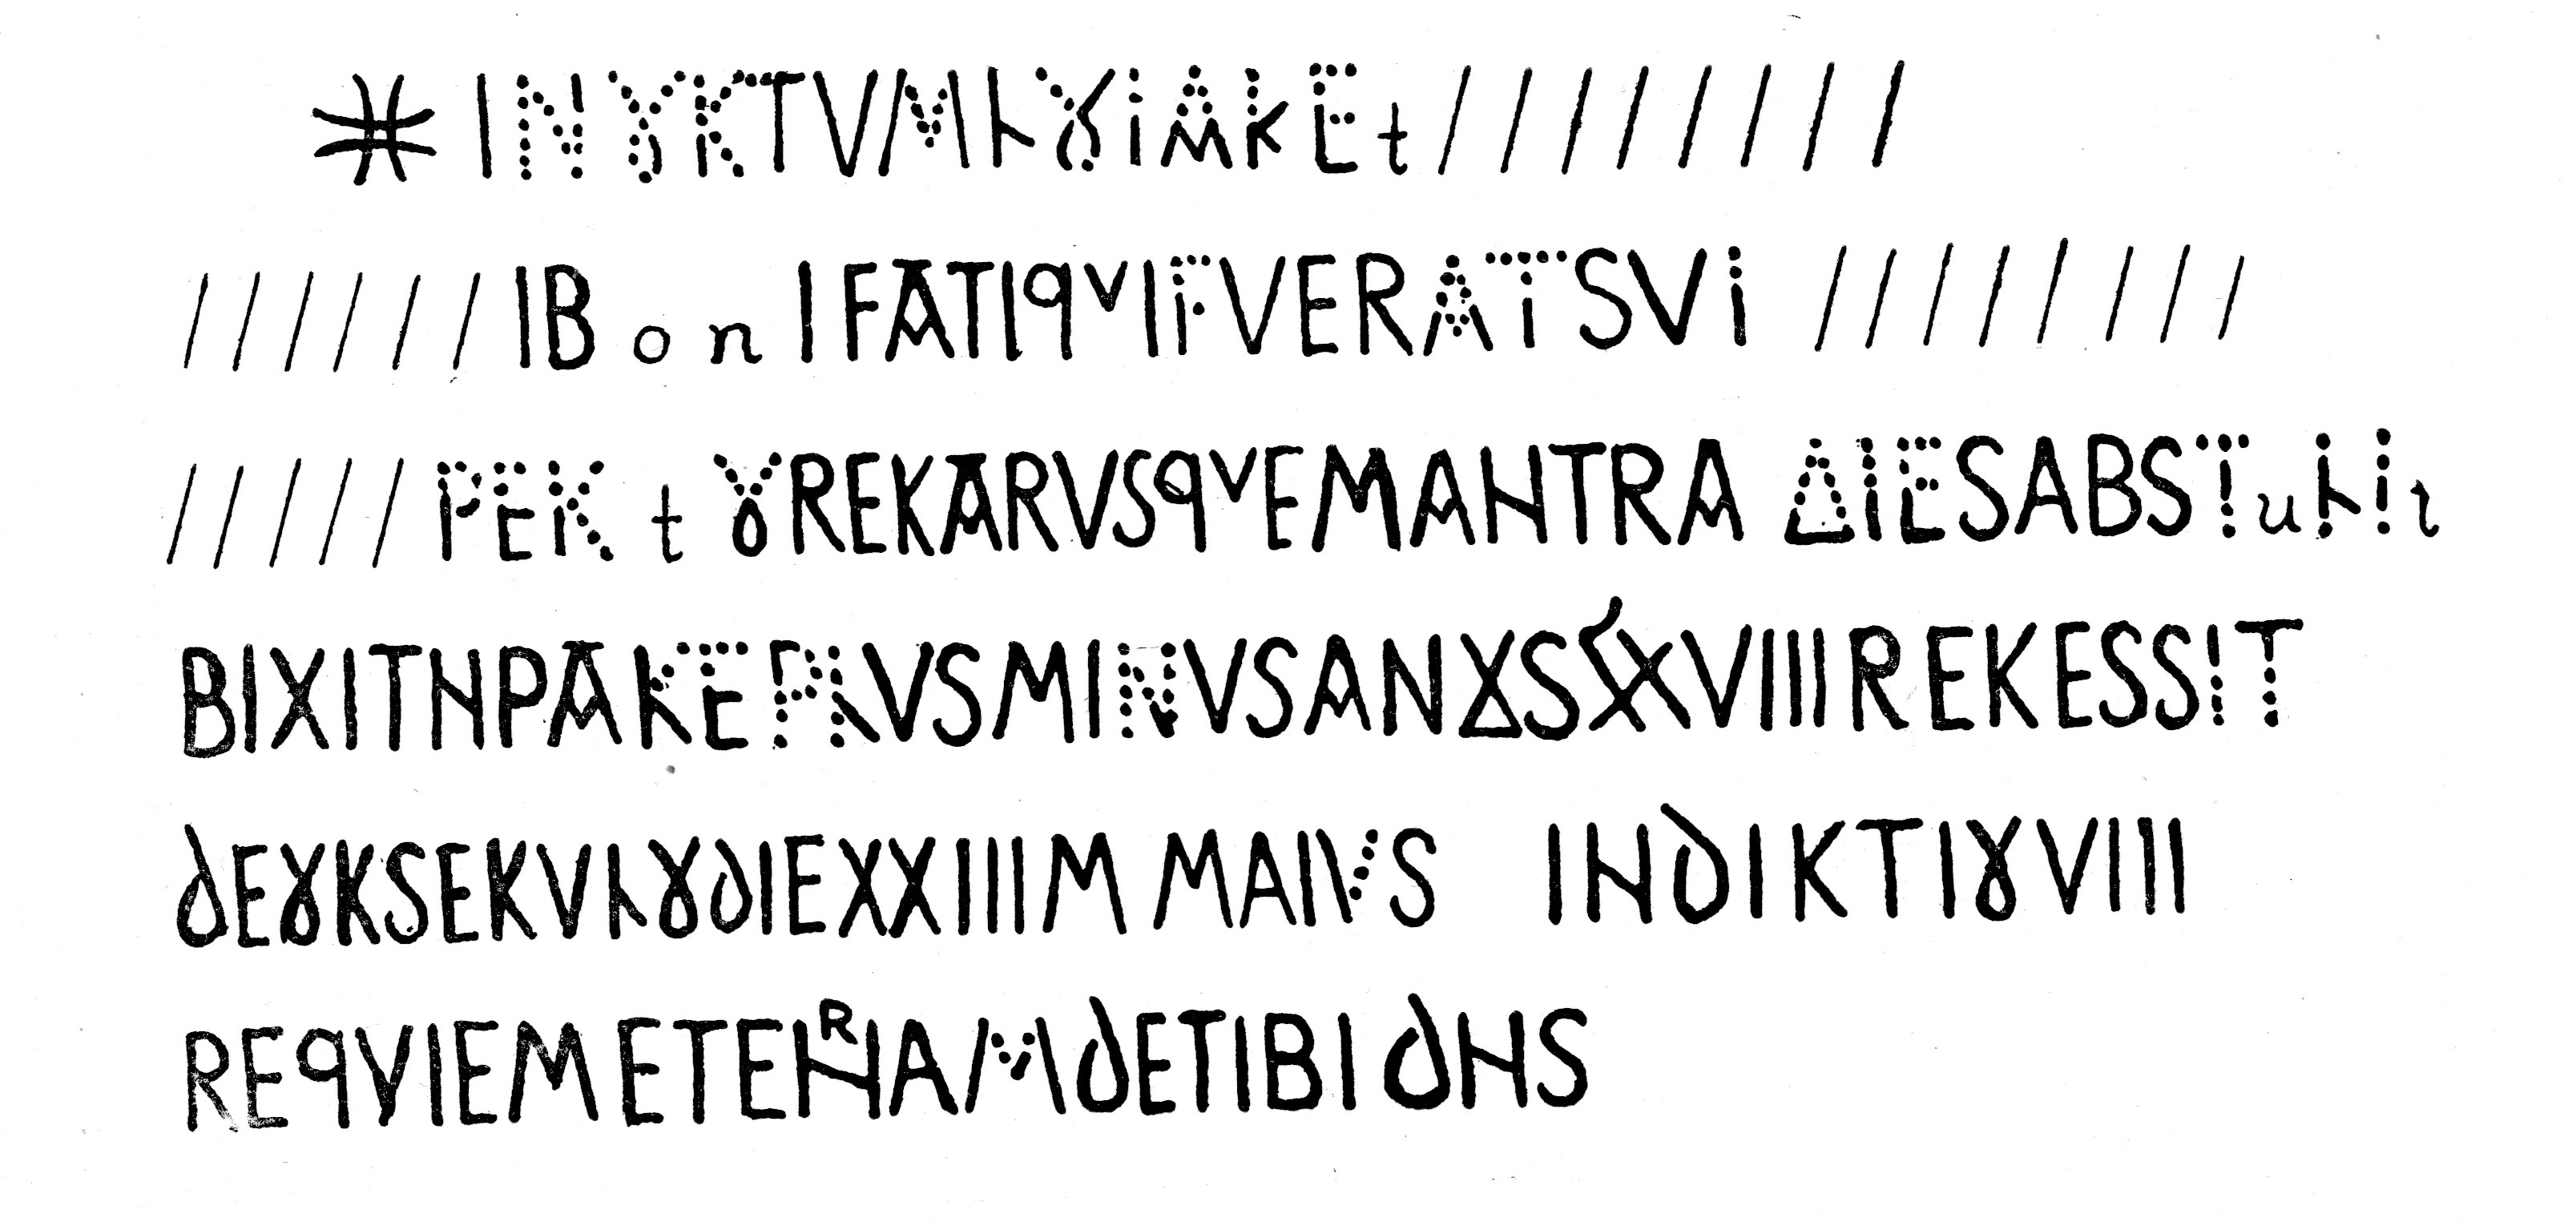 INOKTVMLOIAKEt////////
//////IBonIFATIqVIFVERATSVI ////////
/////PEKtOREKARVSqVEMANTRA DIESABSTuLIt
BIXITNPAKEPLVSMINVSANOSLXVIIIREKESSIT
dEOKSEKVLOdIEXXIIIM MAIVS INdIKTIOVIII
REqVIEMETERNAMdETIBIdNS